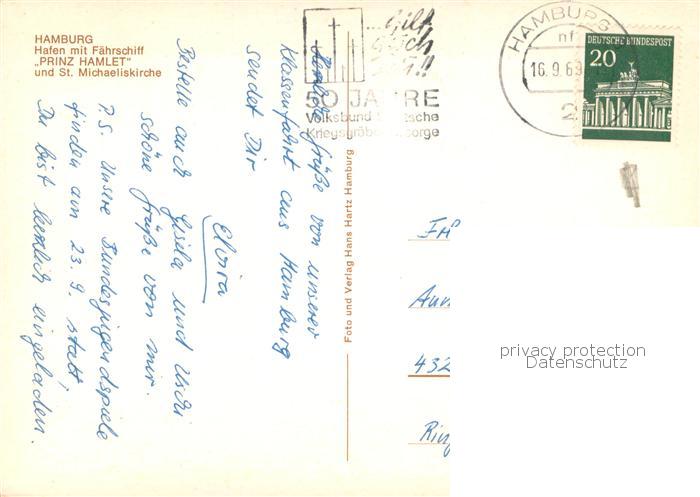 HAMBURG
Hafen mit Fährschiff
„PRINZ HAMLET"
und St. Michaeliskirche
50 JAHRE
Volksbund Deutsche
Kriegsgräberfürsorge
HAMBURG
16.9.69
2
DEUTSCHE BUNDESPOST
20
Grüße von unserer
Klassenfahrt aus Hamburg
sendet Dir
Elvira
Bestelle auch Gisela und Uschi
schöne Grüße von mir.
P.S. Unsere Bundesjugendspiele
finden am 23.9. statt,
Du bist herzlich eingeladen.
Foto und Verlag Hans Hartz Hamburg
432
Ring
privacy protection
Datenschutz